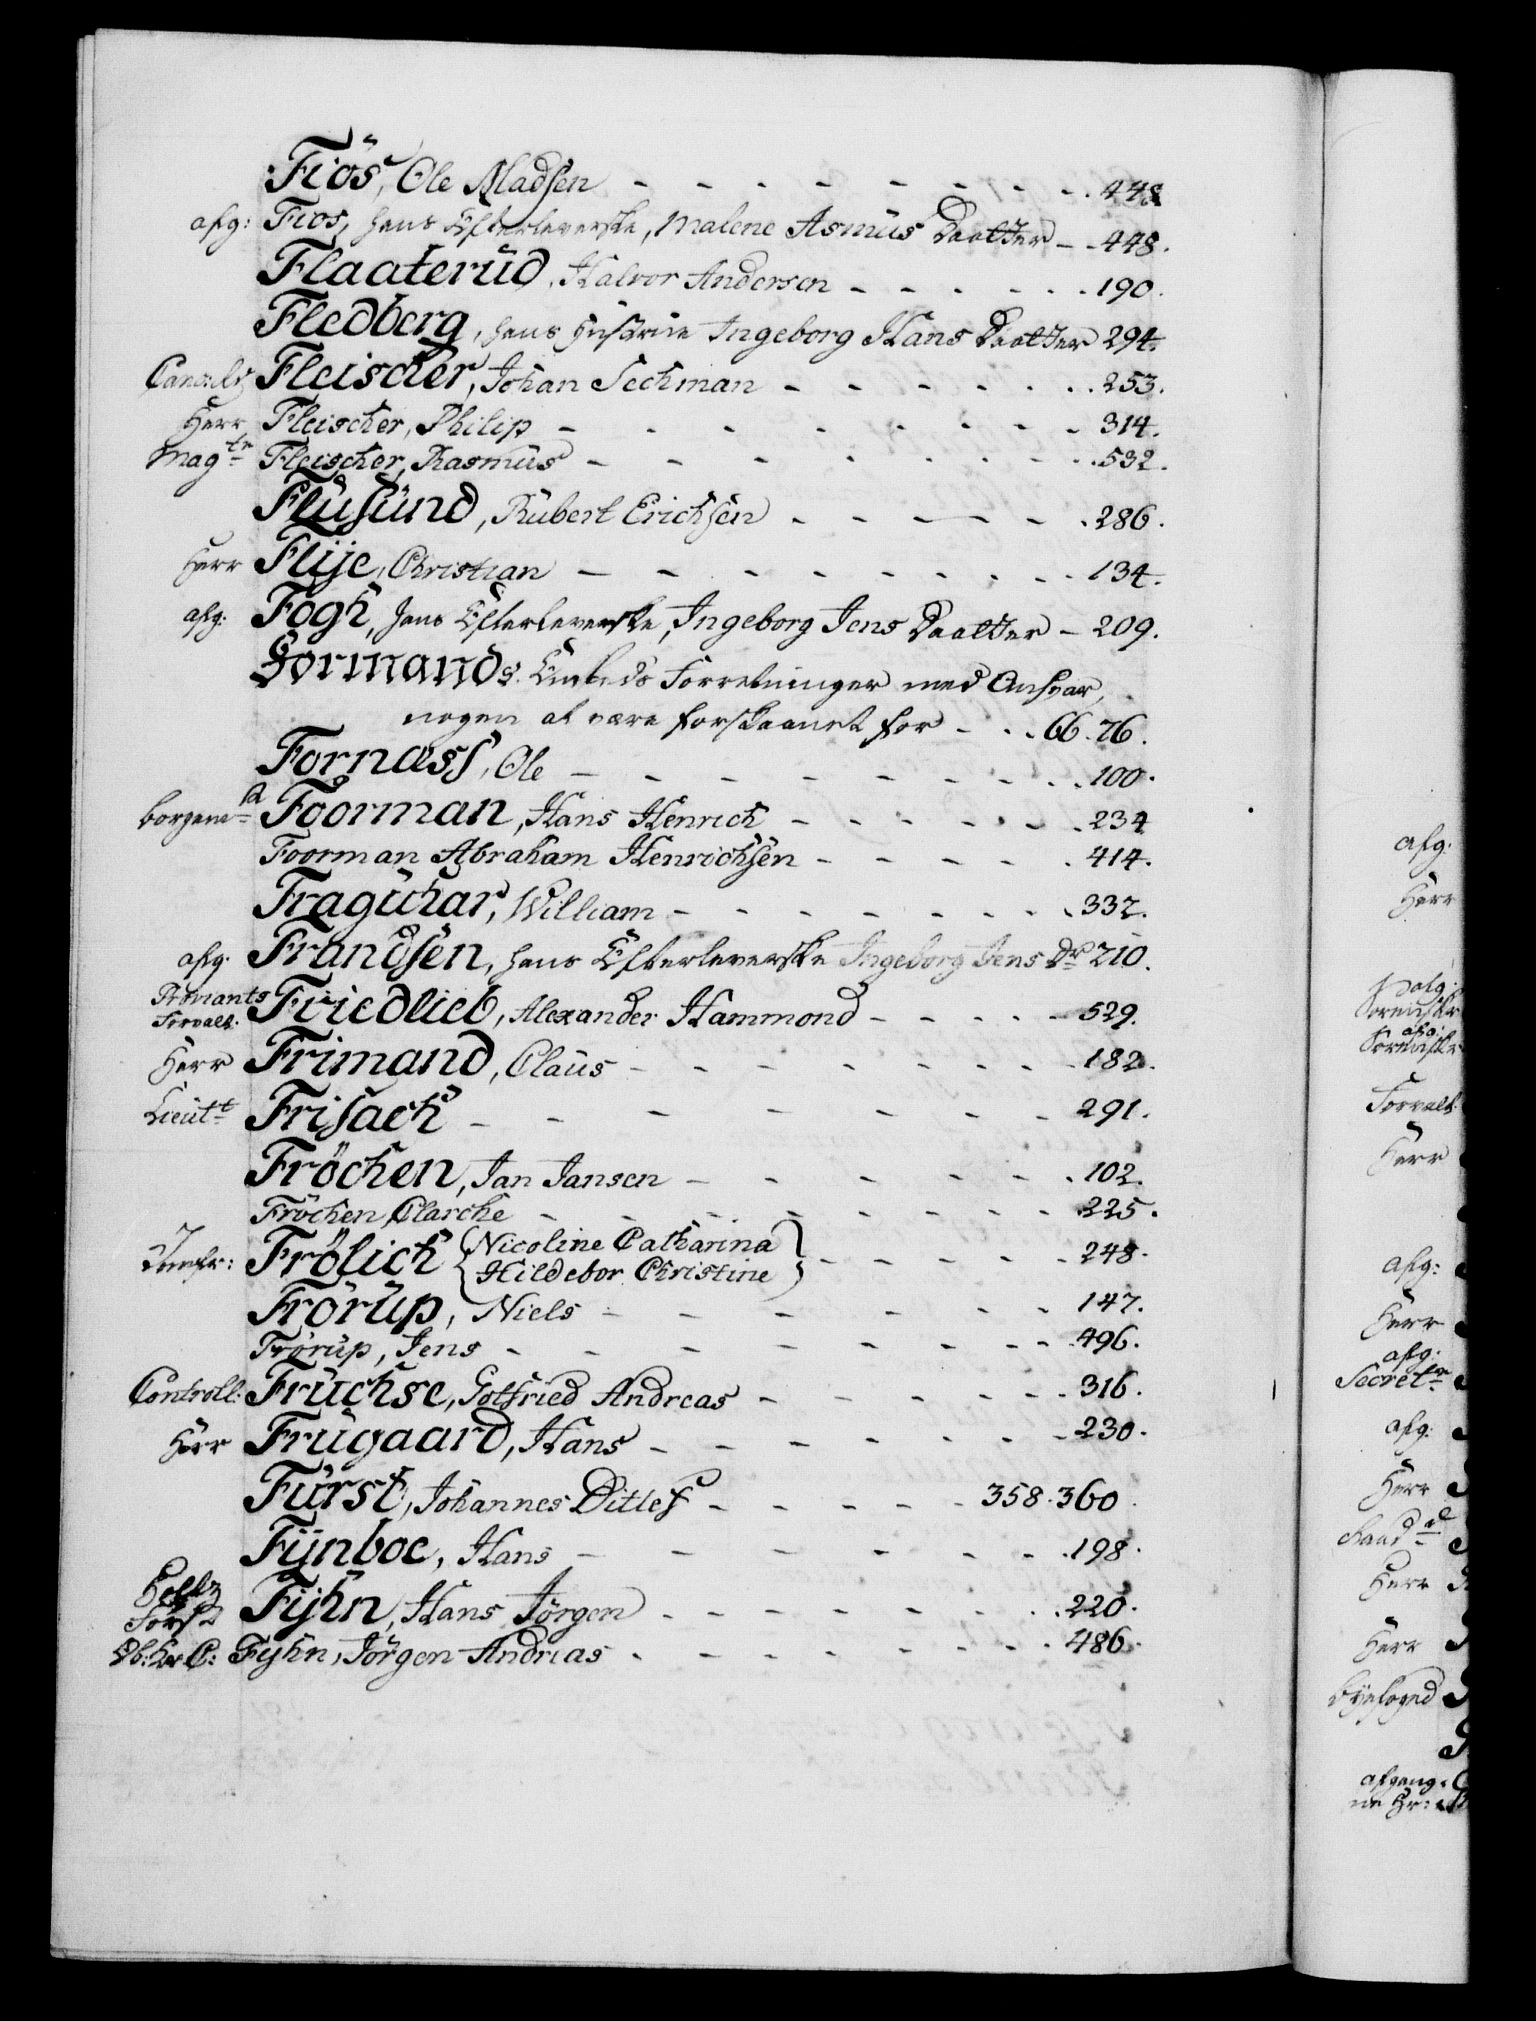 Fiös, Ole Madsen - - - - - - - - 448
afg: Fios, hans Efterleverske, Malene Asmüs Daatter - - 448.
Flaaterüd, Halvor Andersen - - - - - - 190.
Fledberg, hans Hustrue Ingeborg Hans Daatter 294.
Fleischer, Johan Sechman - - - - - - 253.
Herr Fleischer, Philip - - - - - - - - 314.
Magtr Fleischer, Rasmüs - - - - - - - - 532.
Flüsünd, Rübert Erichsen - - - - - 286.
Herr Flije, Christian - - - - - - - - - 134.
afg: Fogh, hans Efterleverske, Ingeborg Jens Daatter - 209.
Formands Embeds Forretninger med Ansvar,
nogen at være forskaanet for - - - 66. 76.
Fornæss, Ole - - - - - - - - - 100.
Foorman, Hans Henrich - - - - - - 234
Foorman Abraham Henrichsen - - - - - 414.
Fragühar, William - - - - - - - - 332.
afg. Frandsen, hans Efterleverske Ingeborg Jens Dr 210.
Proviants
Forvalt. Friedlieb, Alexander Hammond - - - - - 529.
Herr Frimand, Claüs - - - - - - - - 182.
Lieutt Frisach - - - - - - - 291.
Fröchen, Jan Jansen - - - - - - 102.
Fröchen, Clarche - - - - - - - - 225.
Jomfr: Frölich { Nicoline Catharina
Hildebor Christine } - - - - - - 248.
Frörüp, Niels - - - - - - - - 147.
Frörüp, Jens - - - - - - - - 496.
Controll: Früchse, Gotfried Andreas - - - - - - 316.
Herr Frügaard, Hans - - - - - - - - 230.
Fürst, Johannes Ditlef - - - - - - 358. 360.
Fÿnboe, Hans - - - - - - - - 198.
Fÿhn, Hans Jörgen - - - - - - - - 220.
Fyhn, Jörgen Andreas - - - - - - - - 486.
afg.
Herr
afg:
Forvalt.
Herr
afg:
Herr
afg:
Secretr
afg:
Herr
Raadd
Herr
Herr
Byefoged
afgang.
ne Hr: